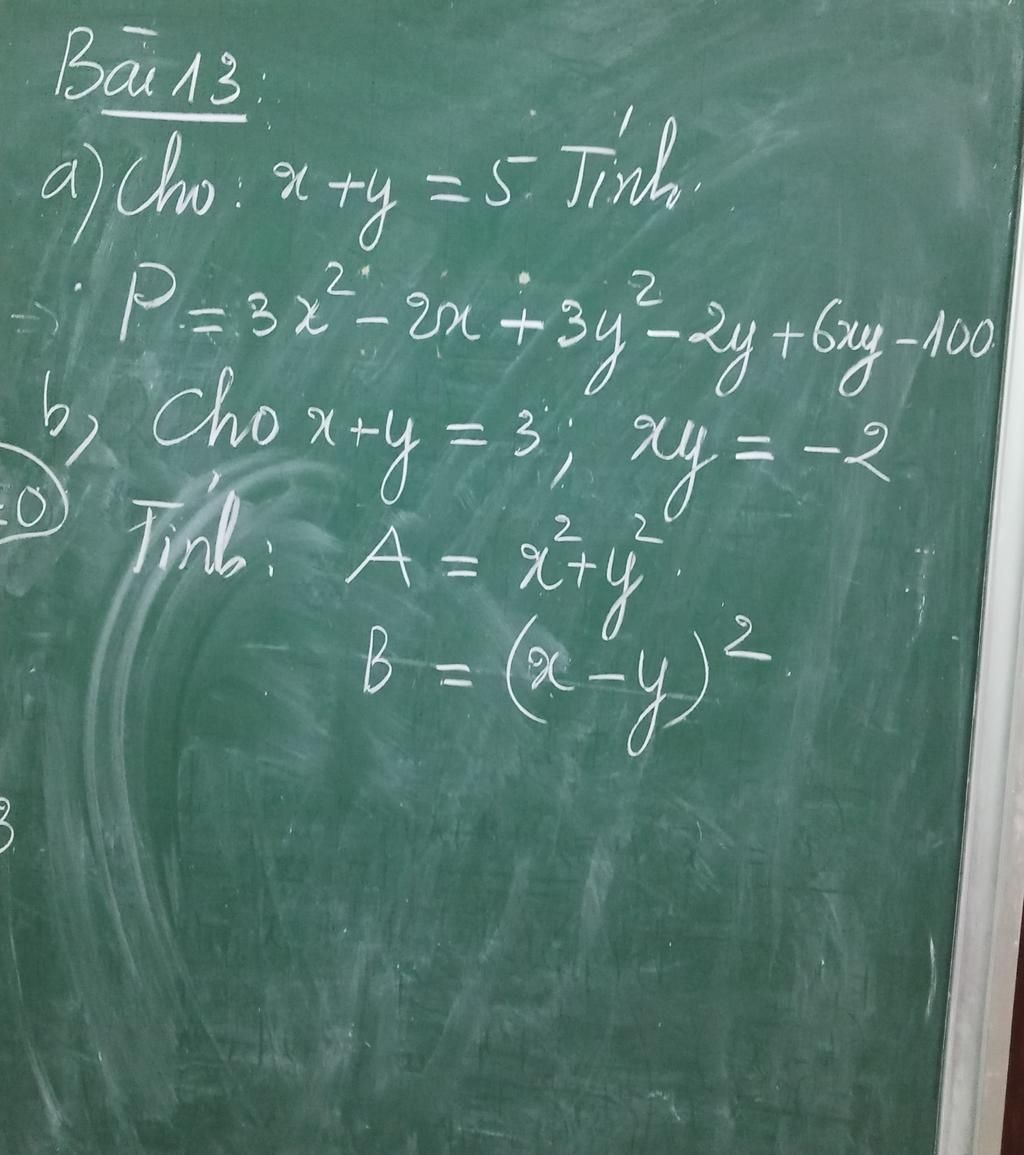 Bài 13:
a) Cho: x + y = 5 Tính.
P = 3x² - 2x + 3y² - 2y + 6xy - 100
b, Cho x + y = 3; xy = -2
=0
Tính: A = x² + y²
B = (x - y)²
3